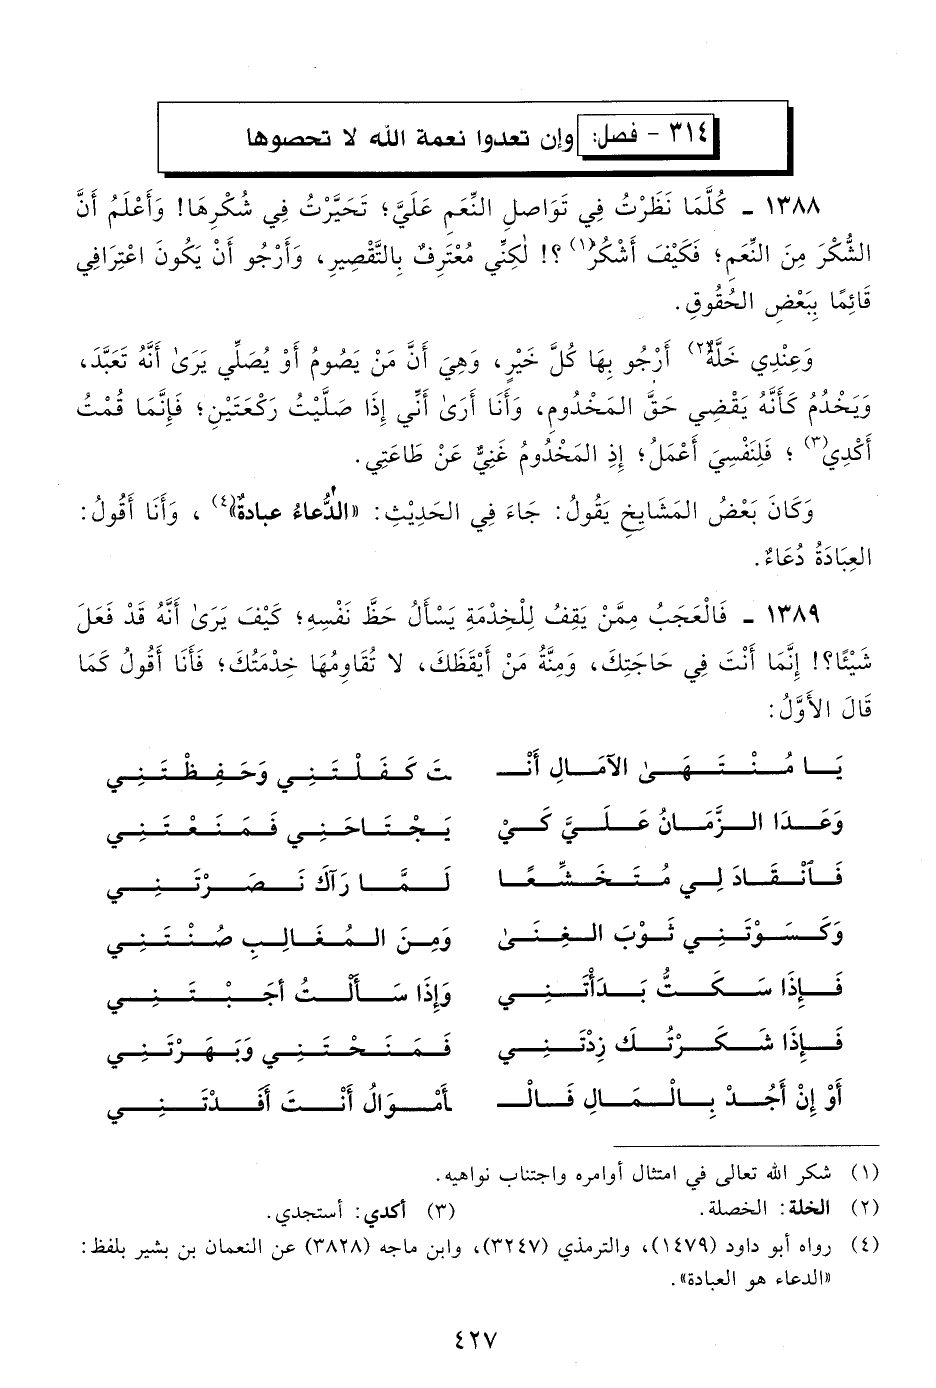 ٣١٤ - فصل: وإن تعدوا نعمة الله لا تحصوها
١٣٨٨ ـ كُلَّمَا نَظَرْتُ فِي تَوَاصلِ النِّعَمِ عَلَيَّ؛ تَحَيَّرْتُ فِي شُكْرِهَا! وَأَعْلَمُ أَنَّ
الشُّكْرَ مِنَ النِّعَمِ؛ فَكَيْفَ أَشْكُرُ(١)؟! لٰكِنِّي مُعْتَرِفٌ بِالتَّقْصِيرِ، وَأَرْجُو أَنْ يَكُونَ اعْتِرَافِي
قَائِمًا بِبَعْضِ الحُقُوقِ.
وَعِنْدِي خَلَّةٌ(٢) أَرْجُو بِهَا كُلَّ خَيْرٍ، وَهِيَ أَنَّ مَنْ يَصُومُ أَوْ يُصَلِّي يَرَىٰ أَنَّهُ تَعَبَّدَ،
وَيَخْدُمُ كَأَنَّهُ يَقْضِي حَقَّ المَخْدُومِ، وَأَنَا أَرَىٰ أَنِّي إِذَا صَلَّيْتُ رَكْعَتَيْنِ؛ فَإِنَّمَا قُمْتُ
أَكْدِي(٣)؛ فَلِنَفْسِيَ أَعْمَلُ؛ إِذِ المَخْدُومُ غَنِيٌّ عَنْ طَاعَتِي.
وَكَانَ بَعْضُ المَشَايِخِ يَقُولُ: جَاءَ فِي الحَدِيْثِ: «الدُّعاءُ عبادةٌ»(٤)، وَأَنَا أَقُولُ:
العِبَادَةُ دُعَاءٌ.
١٣٨٩ ـ فَالْعَجَبُ مِمَّنْ يَقِفُ لِلْخِدْمَةِ يَسْأَلُ حَظَّ نَفْسِهِ؛ كَيْفَ يَرَىٰ أَنَّهُ قَدْ فَعَلَ
شَيْئًا؟! إِنَّمَا أَنْتَ فِي حَاجَتِكَ، وَمِنَّةُ مَنْ أَيْقَظَكَ، لَا تُقَاوِمُهَا خِدْمَتُكَ؛ فَأَنَا أَقُولُ كَمَا
قَالَ الأَوَّلُ:
يَا مُنْتَهَىٰ الآمَالِ أَنْـ ـتَ كَفَلْتَنِي وَحَفِظْتَنِي
وَعَدَا الزَّمَانُ عَلَيَّ كَيْ يَجْتَاحَنِي فَمَنَعْتَنِي
فَٱنْقَادَ لِي مُتَخَشِّعًا لَمَّا رَآكَ نَصَرْتَنِي
وَكَسَوْتَنِي ثَوْبَ الغِنَىٰ وَمِنَ المُغَالِبِ صُنْتَنِي
فَإِذَا سَكَتُّ بَدَأْتَنِي وَإِذَا سَأَلْتُ أجَبْتَنِي
فَإِذَا شَكَرْتُكَ زِدْتَنِي فَمَنَحْتَنِي وَبَهَرْتَنِي
أَوْ إِنْ أَجُدْ بِالْمَالِ فَالْـ ـأَمْوَالُ أَنْتَ أَفَدْتَنِي
(١) شكر الله تعالى في امتثال أوامره واجتناب نواهيه.
(٢) الخلة: الخصلة. (٣) أكدي: أستجدي.
(٤) رواه أبو داود (١٤٧٩)، والترمذي (٣٢٤٧)، وابن ماجه (٣٨٢٨) عن النعمان بن بشير بلفظ:
«الدعاء هو العبادة».
٤٢٧